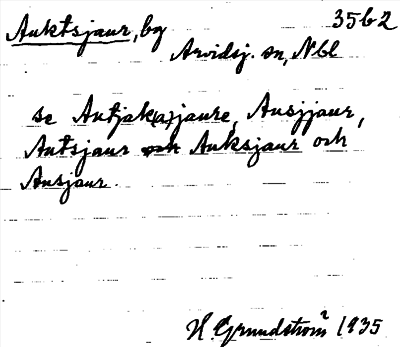 Auktsjaur, by 35b2
Arvidsj. sn, Nbl
se Autjak(a)jaure, Ausjjaur,
Autsjaur Auksjaur och
Ausjaur.
H. Grundström 1935